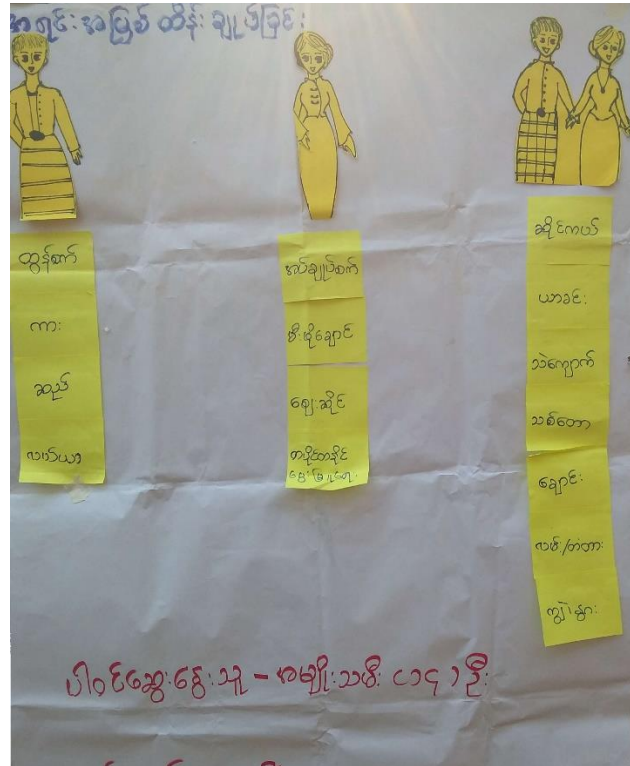 အရင်းအမြစ် ထိန်းချုပ်ခြင်း
ထွန်စက်
ကား
ဆည်
လယ်ယာ
အပ်ချုပ်စက်
မီးဖိုချောင်
ဈေးဆိုင်
တပိုင်တနိုင်
မွေးမြူရေး
ဆိုင်ကယ်
ယာခင်း
သဲကျောက်
သစ်တော
ချောင်း
လမ်း/တံတား
ကျွဲ၊နွား
ပါဝင်ဆွေးနွေးသူ - အမျိုးသမီး (၁၄) ဦး